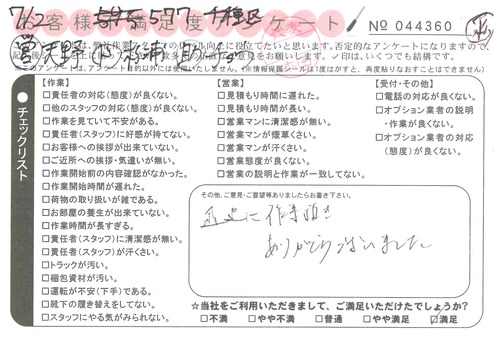 お客様満足度アンケート
No 044360
【作業】
□責任者の対応(態度)が良くない。
□他のスタッフの対応(態度)が良くない。
□作業を見ていて不安がある。
□責任者(スタッフ)に好感が持てない。
□お客様への挨拶が出来ていない。
□ご近所への挨拶・気遣いが無い。
□作業開始前の内容確認がなかった。
□作業開始時間が遅れた。
□荷物の取り扱いが雑である。
□お部屋の養生が出来ていない。
□作業時間が長すぎる。
□責任者(スタッフ)に清潔感が無い。
□責任者(スタッフ)が汗くさい。
□トラックが汚い。
□梱包資材が汚い。
□運転が不安(下手)である。
□靴下の履き替えをしてない。
□スタッフにやる気がみられない。
【営業】
□見積もり時間に遅れた。
□見積もり時間が長い。
□営業マンに清潔感が無い。
□営業マンが煙草くさい。
□営業マンが汗くさい。
□営業態度が良くない。
□営業の説明と作業が一致してない。
【受付・その他】
□電話の対応が良くない。
□オプション業者の説明
・作業が良くない。
□オプション業者の対応
(態度)が良くない。
●チェックリスト
その他、ご意見・ご要望等ありましたらお書き下さい。
迅速に作業頂き
ありがとうございました
☆当社をご利用いただきまして、ご満足いただけたでしょうか?
□不満 □やや不満 □普通 □やや満足 ☑満足